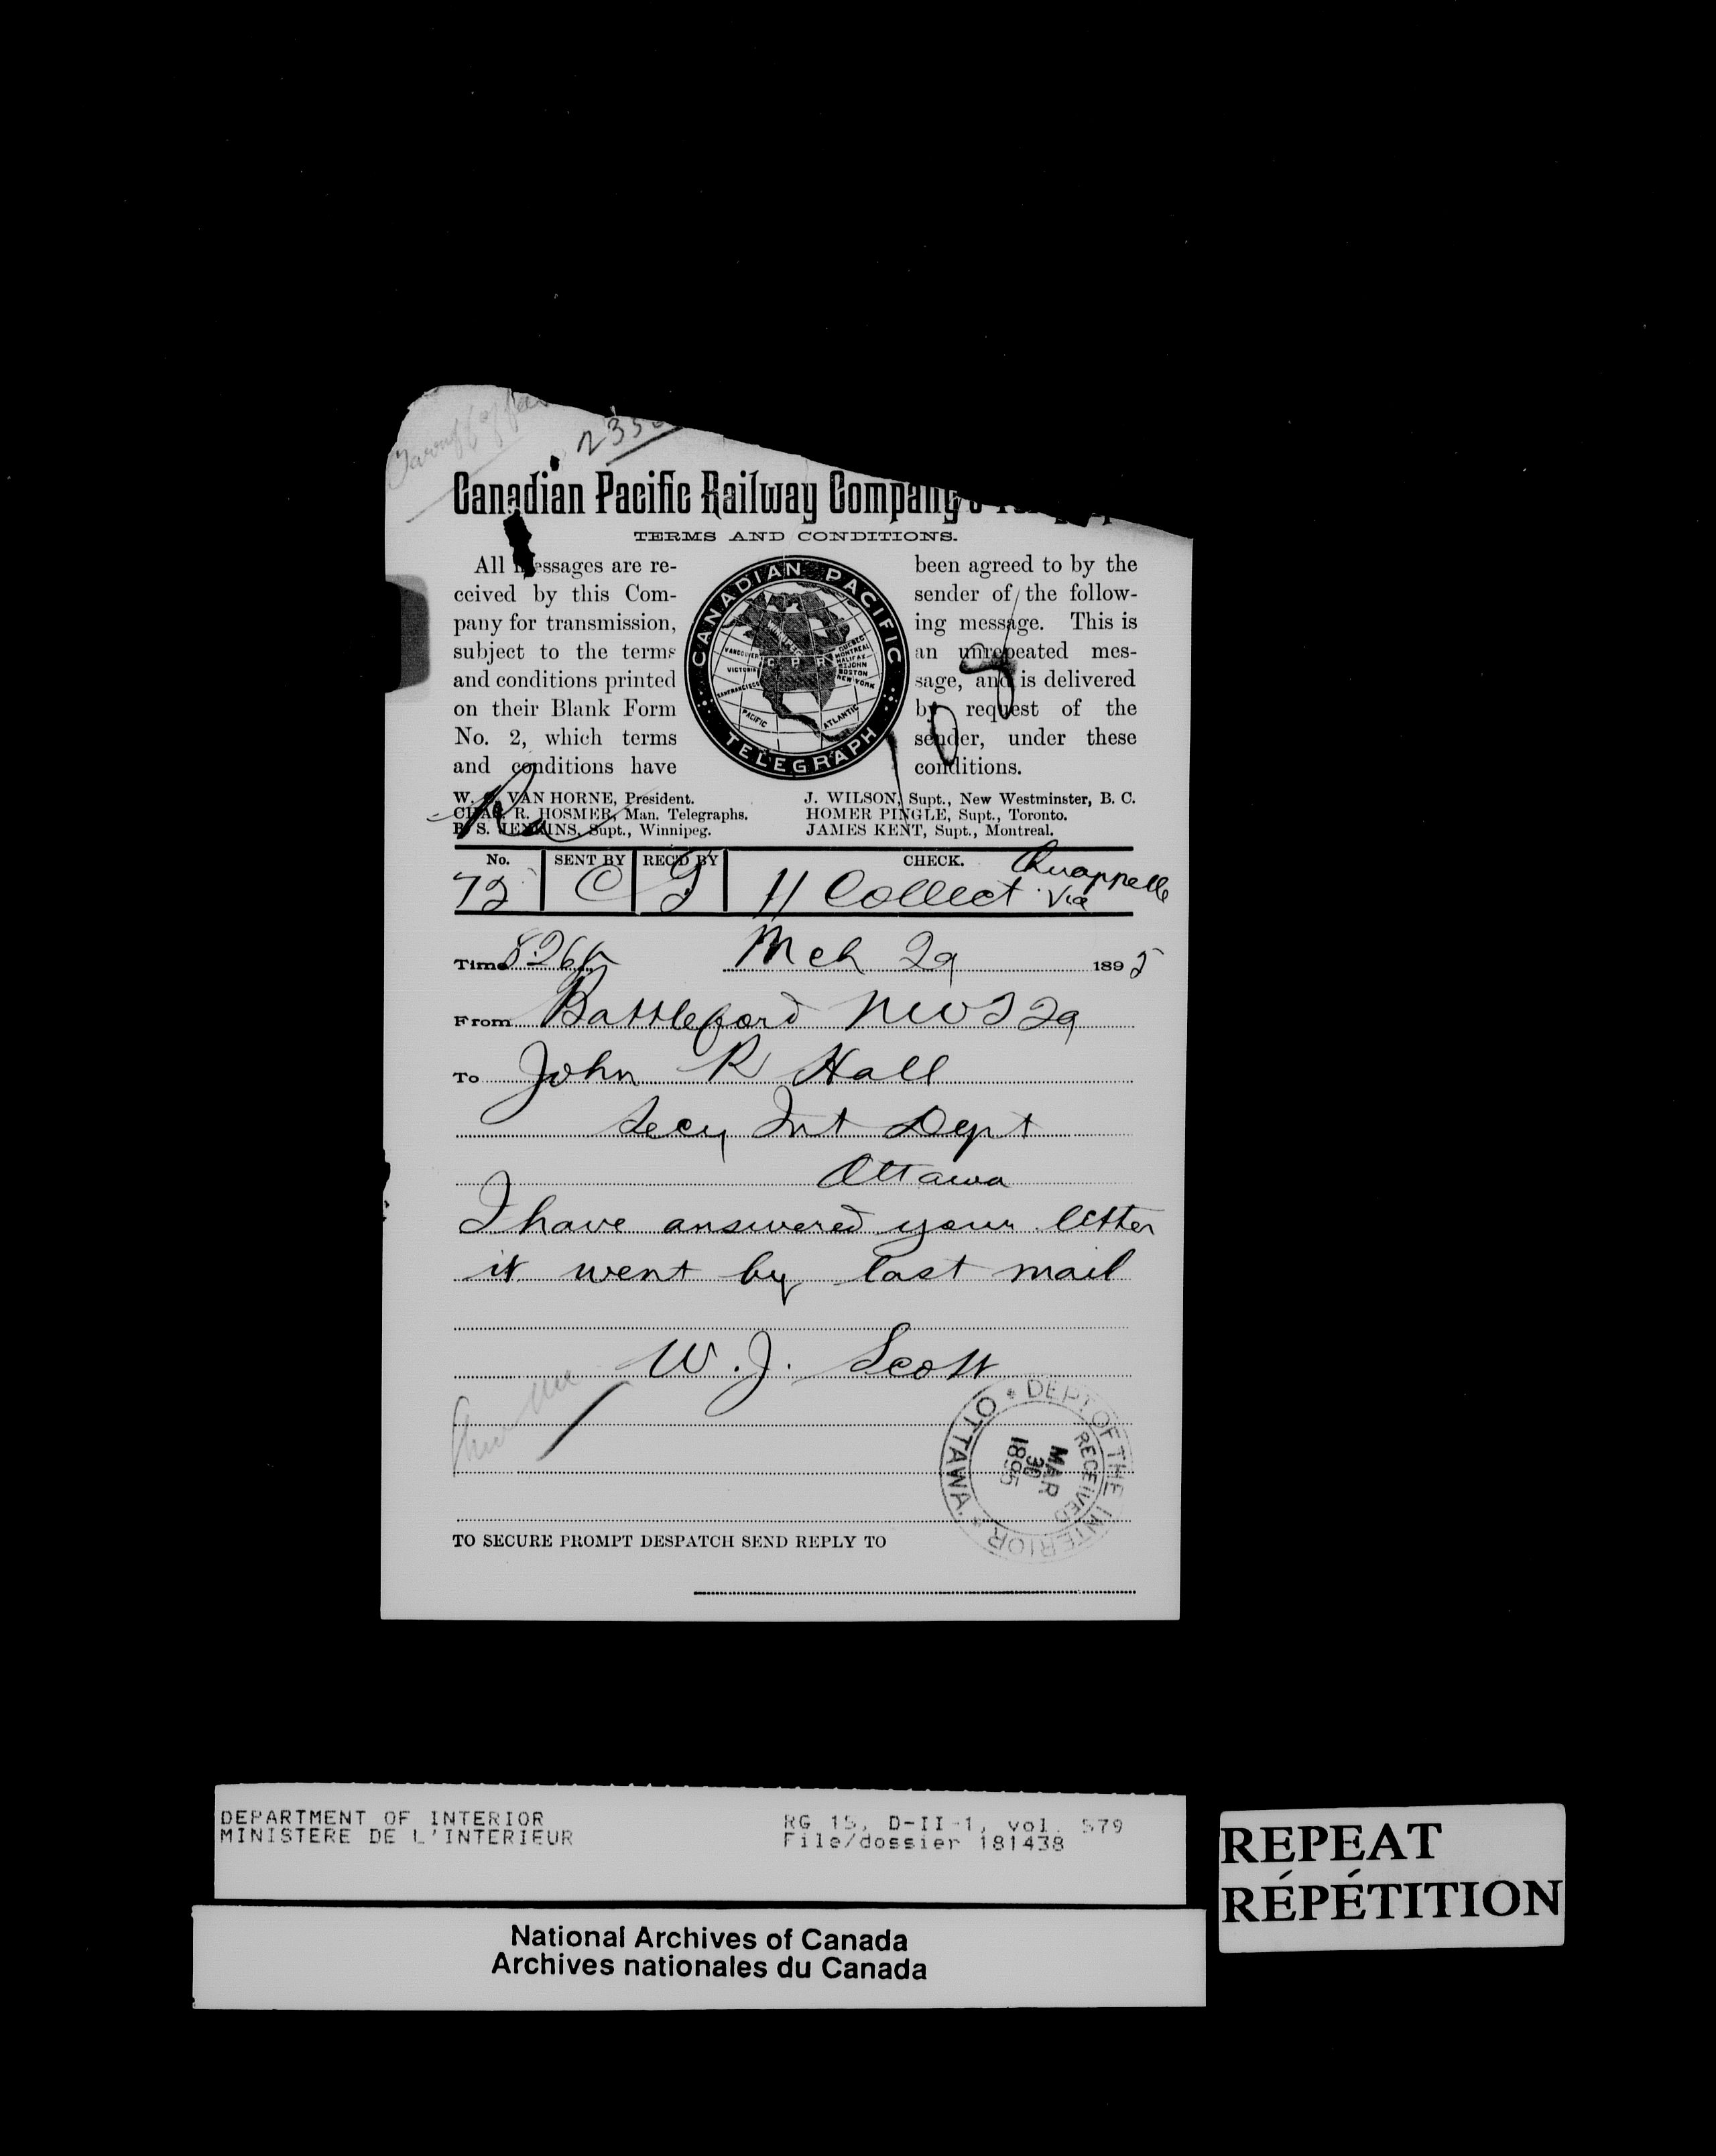 235
Canadian Pacific Railway Company's
TERMS AND CONDITIONS.
All messages are re-
ceived by this Com-
pany for transmission,
subject to the terms
and conditions printed
on their Blank Form
No. 2, which terms
and conditions have
CANADIAN PACIFIC
TELEGRAPH
WINNIPEG
VANCOUVER
VICTORIA
SAN FRANCISCO
C P R
QUEBEC
MONTREAL
HALIFAX
ST JOHN
BOSTON
NEW YORK
PACIFIC
ATLANTIC
been agreed to by the
sender of the follow-
ing message. This is
an unrepeated mes-
sage, and is delivered
by request of the
sender, under these
conditions.
W. C. VAN HORNE, President.
CHAS. R. HOSMER, Man. Telegraphs.
B. S. JENKINS, Supt., Winnipeg.
J. WILSON, Supt., New Westminster, B. C.
HOMER PINGLE, Supt., Toronto.
JAMES KENT, Supt., Montreal.
No. SENT BY REC'D BY CHECK.
72 C G 11 Collect Via Quappelle
Time 8.26p Mch 29 1895
From Battleford NWT 29
To John R Hall
Secy Int Dept
Ottawa
I have answered your letter
it went by last mail
W. J. Scott
DEPT OF THE INTERIOR
OTTAWA
RECEIVED
MAR
30
1895
TO SECURE PROMPT DESPATCH SEND REPLY TO
DEPARTMENT OF INTERIOR
MINISTERE DE L'INTERIEUR
RG 15, D-II-1, vol. 579
File/dossier 181438
REPEAT
RÉPÉTITION
National Archives of Canada
Archives nationales du Canada